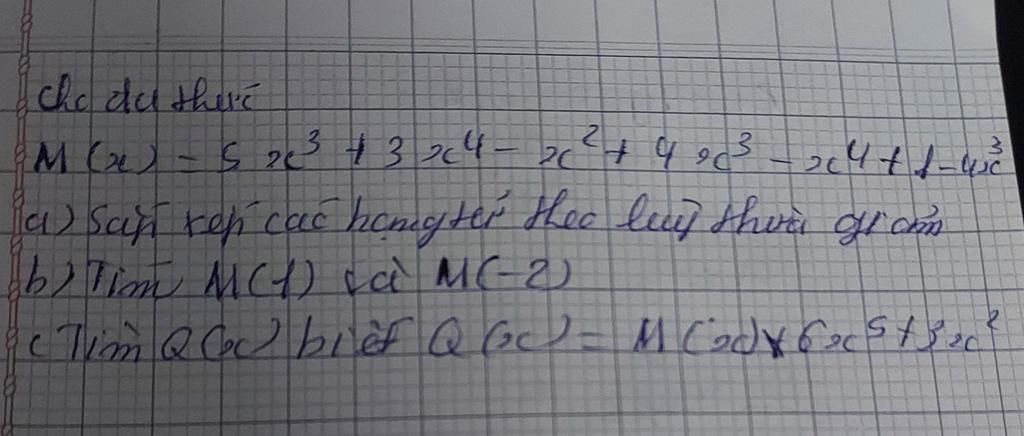 Cho đa thức
M(x) = 5x³ + 3x4 - x² + 4x³ - x4 + 1 - 4x³
a) Sắp xếp các hạng tử theo luỹ thừa giảm
b) Tìm M(1) và M(-2)
c Tìm Q(x) biết Q(x) = M(x) + 6x⁵ + 3x²